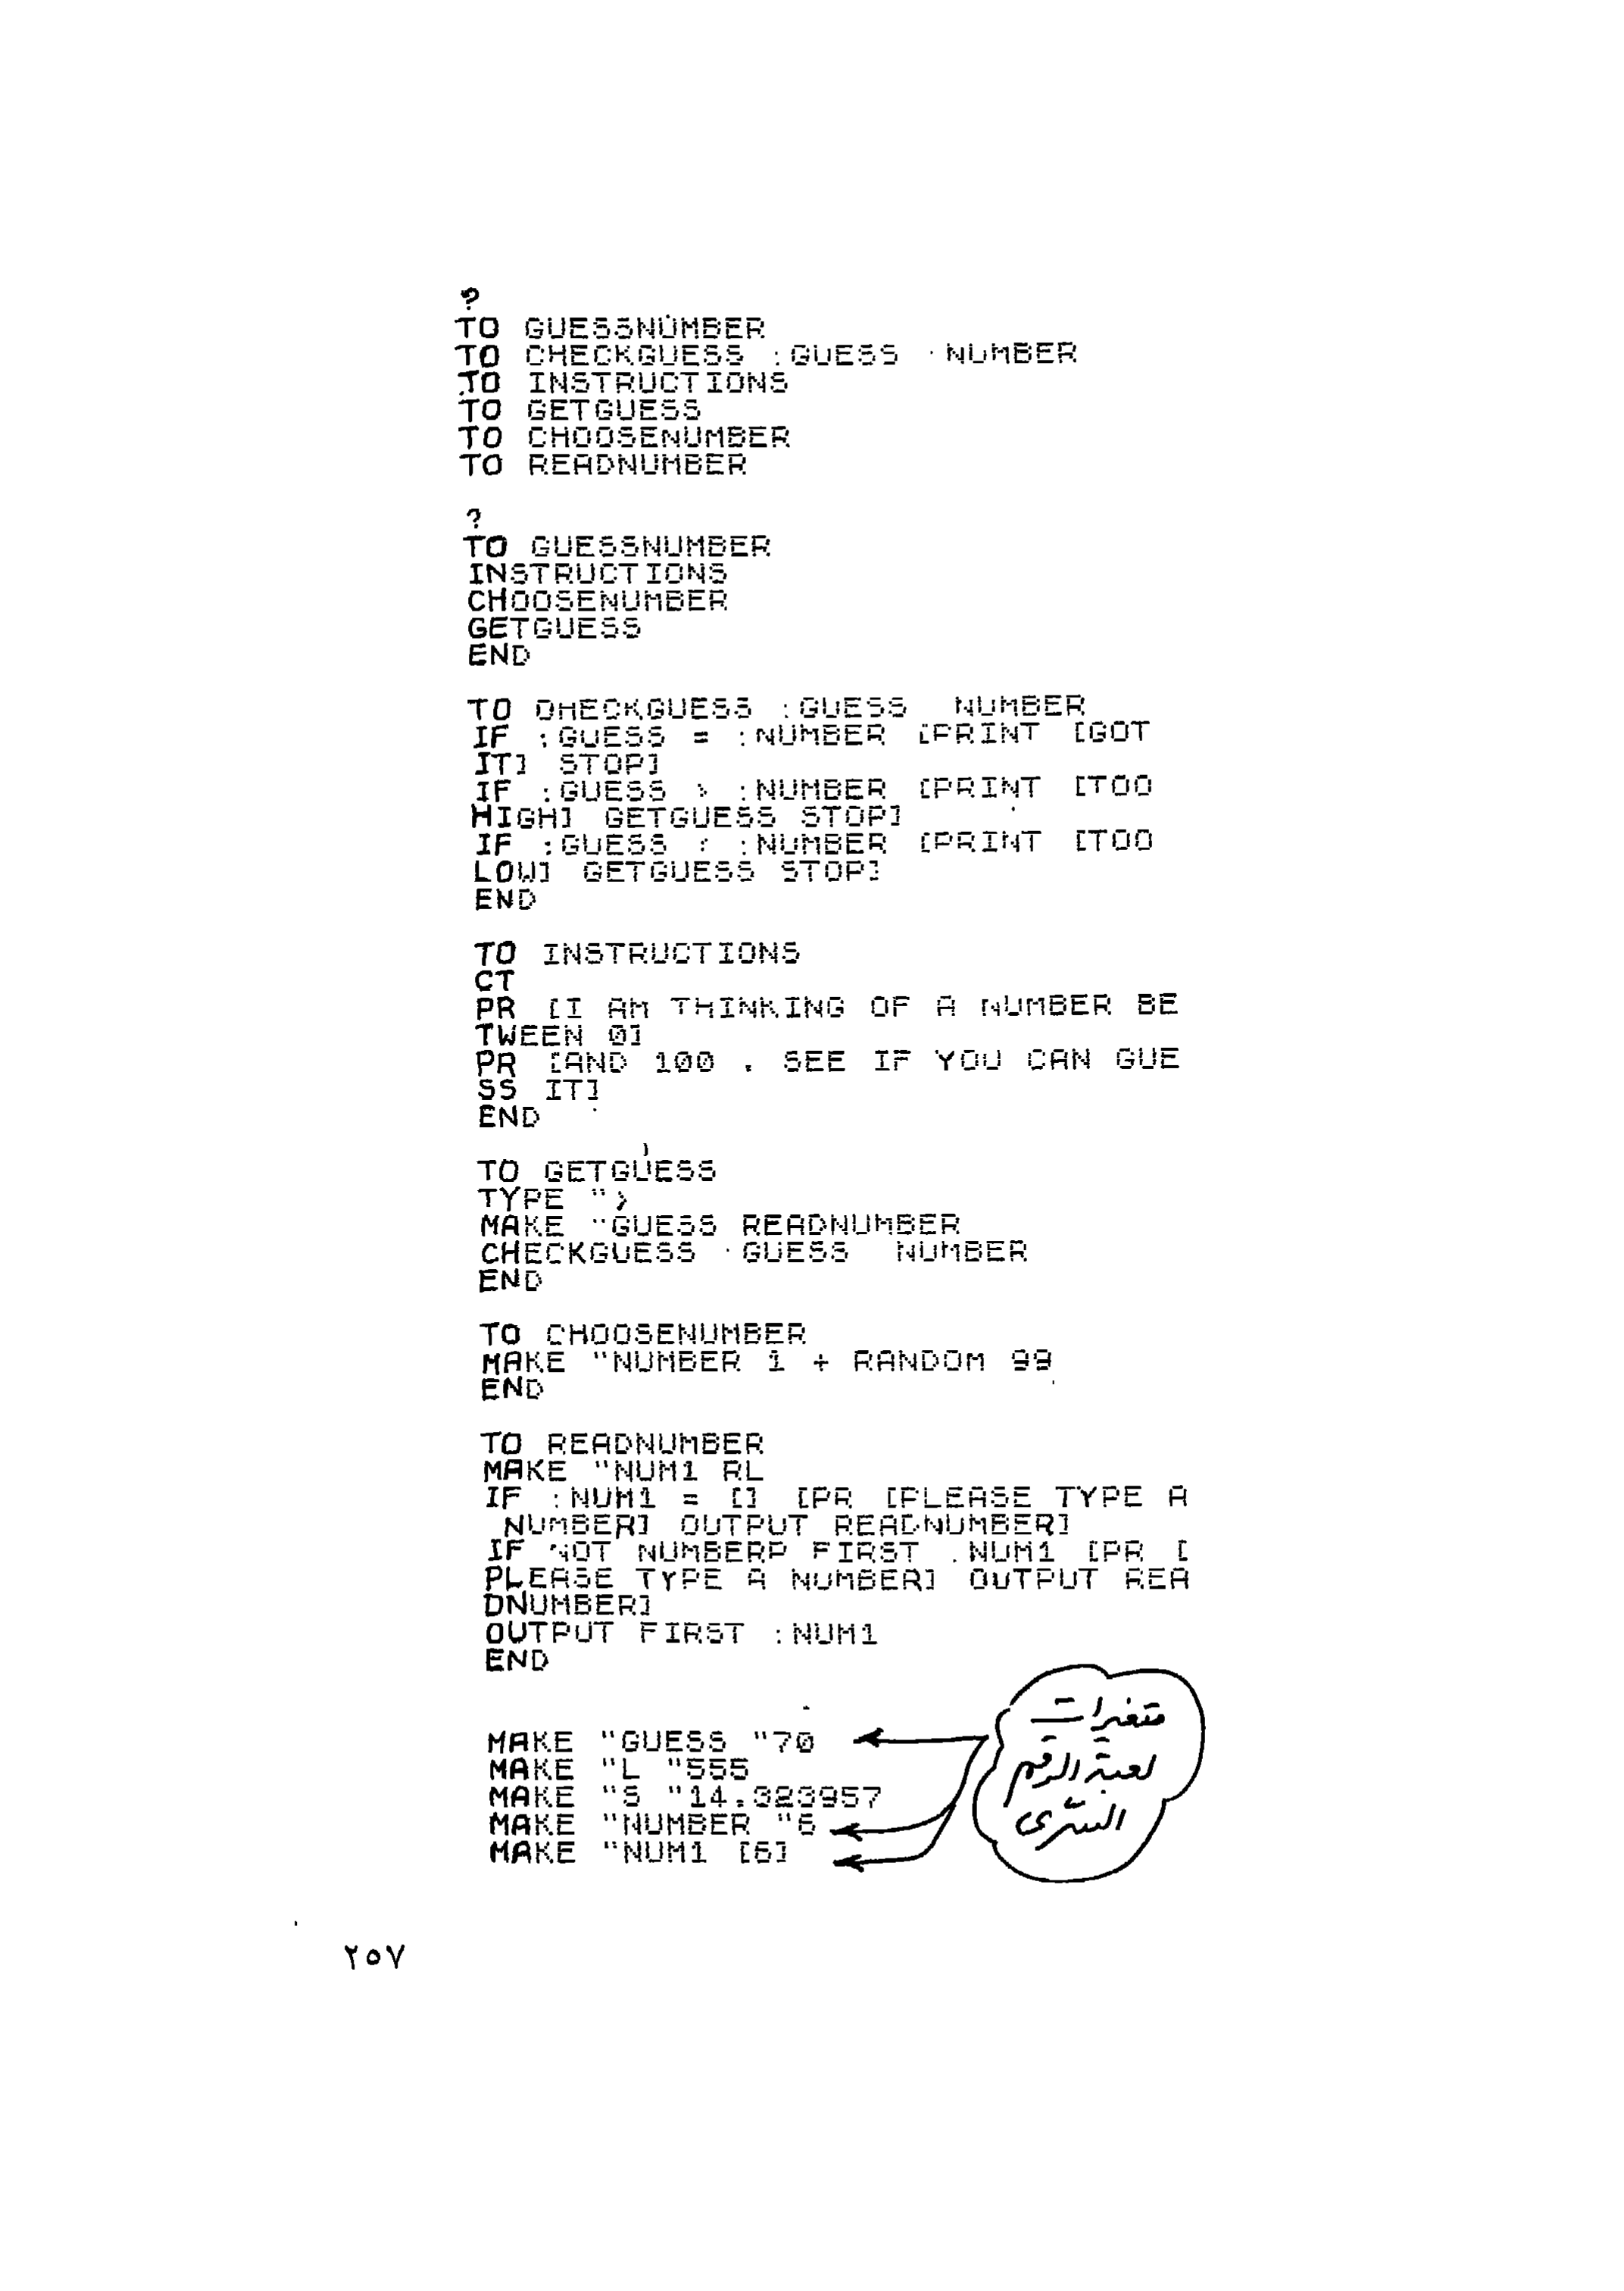 ?
TO GUESSNUMBER
TO CHECKGUESS :GUESS :NUMBER
TO INSTRUCTIONS
TO GETGUESS
TO CHOOSENUMBER
TO READNUMBER
?
TO GUESSNUMBER
INSTRUCTIONS
CHOOSENUMBER
GETGUESS
END
TO CHECKGUESS :GUESS NUMBER
IF :GUESS = :NUMBER [PRINT [GOT
IT] STOP]
IF :GUESS > :NUMBER [PRINT [TOO
HIGH] GETGUESS STOP]
IF :GUESS < :NUMBER [PRINT [TOO
LOW] GETGUESS STOP]
END
TO INSTRUCTIONS
CT
PR [I AM THINKING OF A NUMBER BE
TWEEN 0]
PR [AND 100 . SEE IF YOU CAN GUE
SS IT]
END
TO GETGUESS
TYPE ">
MAKE "GUESS READNUMBER
CHECKGUESS :GUESS NUMBER
END
TO CHOOSENUMBER
MAKE "NUMBER 1 + RANDOM 99
END
TO READNUMBER
MAKE "NUM1 RL
IF :NUM1 = [] [PR [PLEASE TYPE A
NUMBER] OUTPUT READNUMBER]
IF NOT NUMBERP FIRST :NUM1 [PR [
PLEASE TYPE A NUMBER] OUTPUT REA
DNUMBER]
OUTPUT FIRST :NUM1
END
MAKE "GUESS "70
MAKE "L "555
MAKE "S "14.323957
MAKE "NUMBER "6
MAKE "NUM1 [6]
متغيرات
لعبة الرقم
السرى
٢٥٧